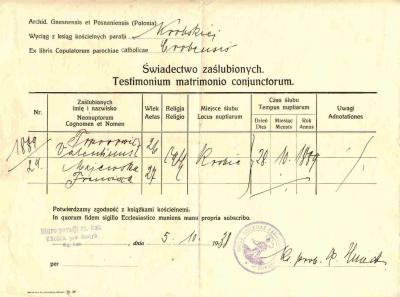 Archid. Gnesnensis et Posnaniensis (Polonia)
Wyciąg z ksiąg kościelnych parafji Krobskiej
Ex libris Copulatorum parochiae catholicae Crobensis
Świadectwo zaślubionych.
Testimonium matrimonio conjunctorum.
Nr. Zaślubionych imię i nazwisko Neonuptorum Cognomen et Nomen Wiek Aetas Religja Religio Miejsce ślubu Locus nuptiarum Czas ślubu Tempus nuptiarum Dzień Dies Miesiąc Mensis Rok Annus Uwagi Adnotationes
1889 26
29 Valentinus Krobia 28 10. 1889
Majewska 27
Francisca
Potwierdzamy zgodność z książkami kościelnemi.
In quorum fidem sigillo Ecclesiastico muniens manu propria subscribo.
Biuro parafji rz.-kat.
, dnia 5. 10. 1939
per